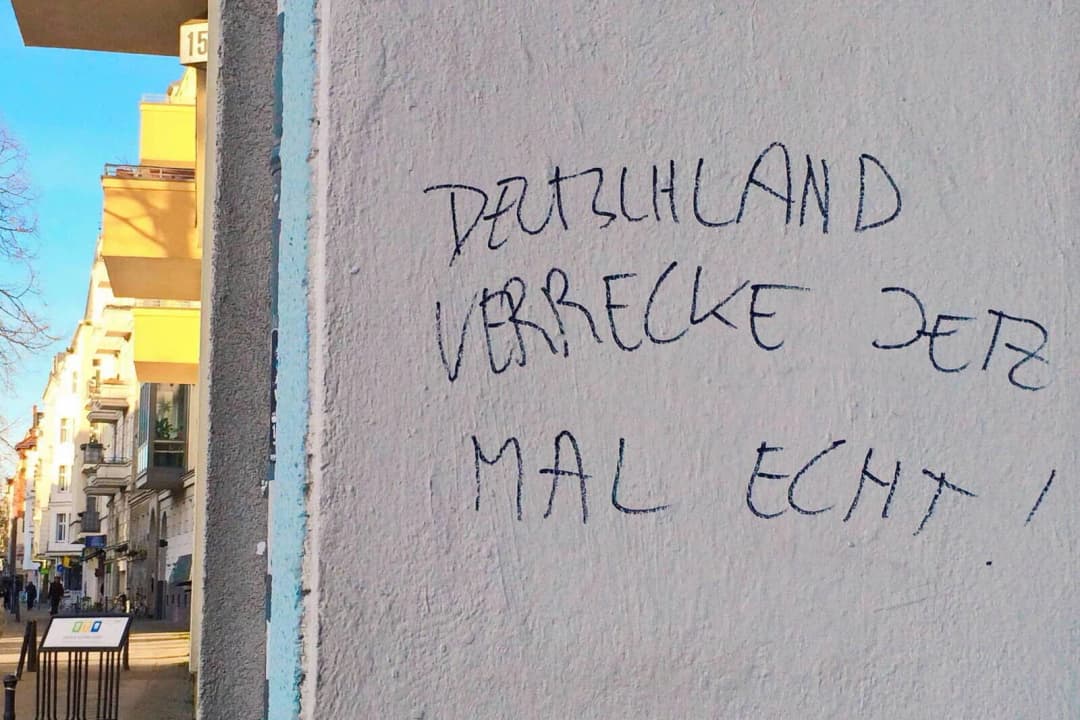 15
DEUTSCHLAND
VERRECKE JETZ
MAL ECHT!